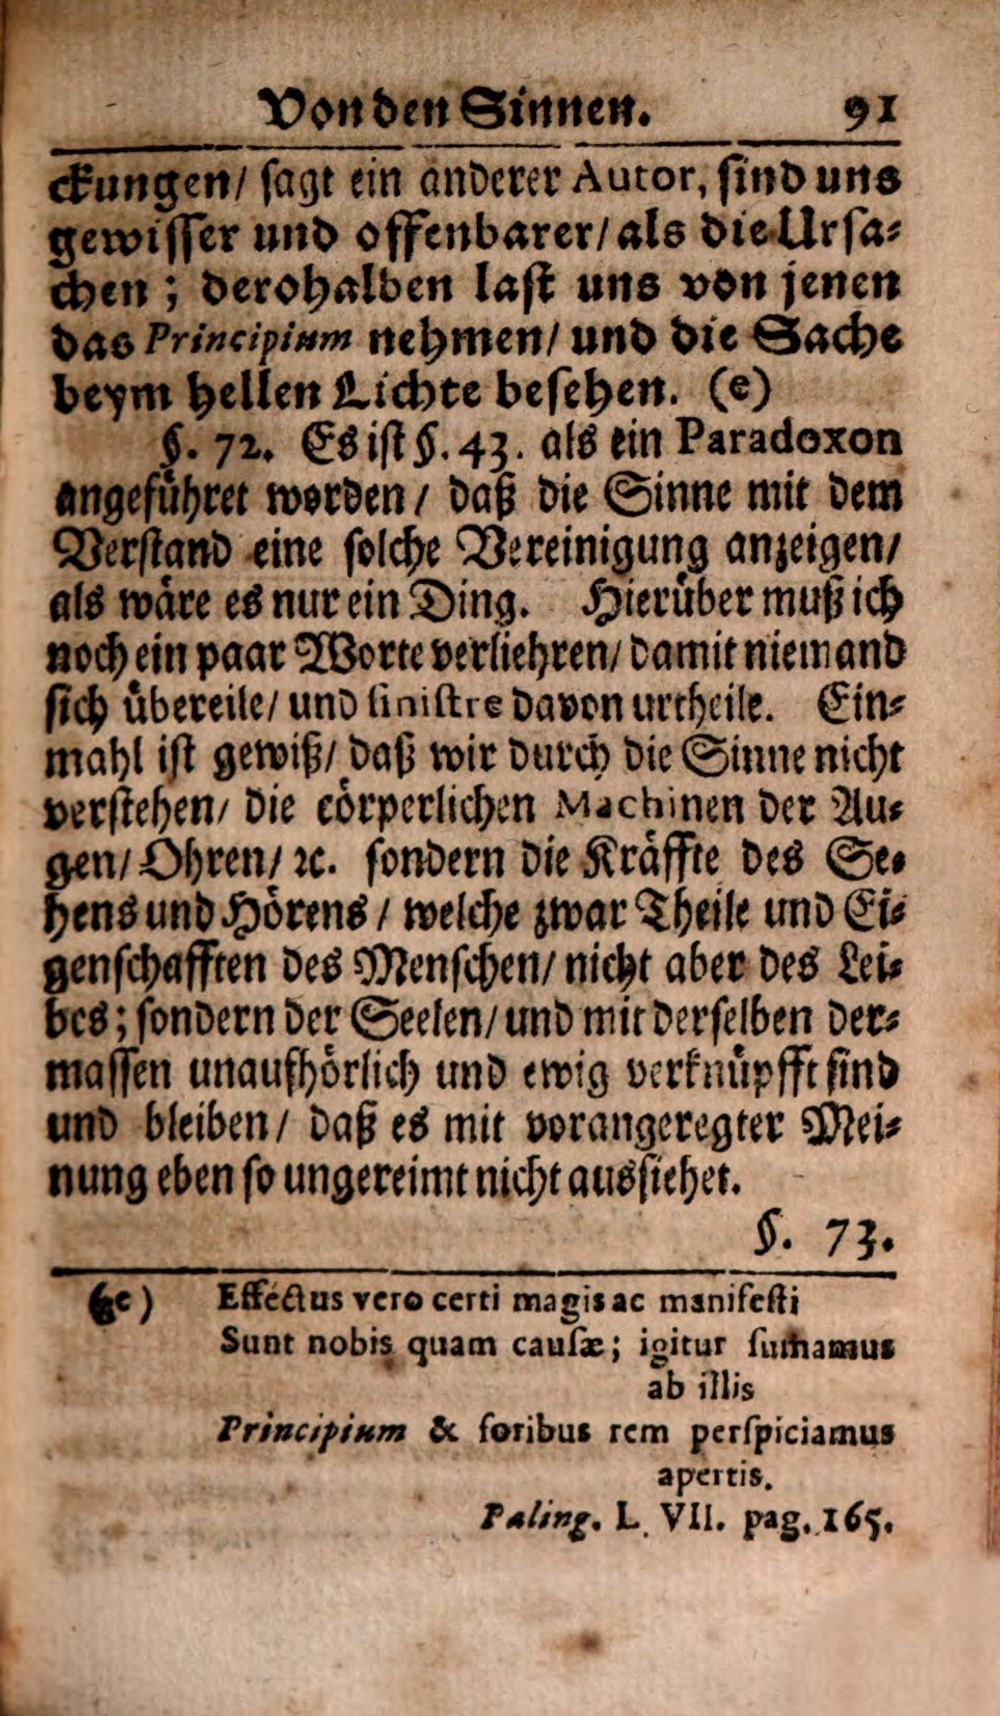 Von den Sinnen. 91
ckungen/ sagt ein anderer Autor, sind uns
gewisser und offenbarer/ als die Ursa⸗
chen; derohalben last uns von jenen
das Principium nehmen/ und die Sache
beym hellen Lichte besehen. (e)
§. 72. Es ist §. 43. als ein Paradoxon
angefuͤhret worden/ daß die Sinne mit dem
Verstand eine solche Vereinigung anzeigen/
als waͤre es nur ein Ding. Hieruͤber muß ich
noch ein paar Worte verliehren/ damit niemand
sich uͤbereile/ und sinistre davon urtheile. Ein⸗
mahl ist gewiß/ daß wir durch die Sinne nicht
verstehen/ die coͤrperlichen Machinen der Au⸗
gen/ Ohren/ ꝛc. sondern die Kraͤffte des Se⸗
hens und Hoͤrens/ welche zwar Theile und Ei⸗
genschafften des Menschen/ nicht aber des Lei⸗
bes; sondern der Seelen/ und mit derselben der⸗
massen unaufhoͤrlich und ewig verknuͤpfft sind
und bleiben/ daß es mit vorangeregter Mei⸗
nung eben so ungereimt nicht aussiehet.
§. 73.
(e) Effectus vero certi magis ac manifesti
Sunt nobis quam causæ; igitur sumamus
ab illis
Principium & foribus rem perspiciamus
apertis.
Paling. L. VII. pag. 165.